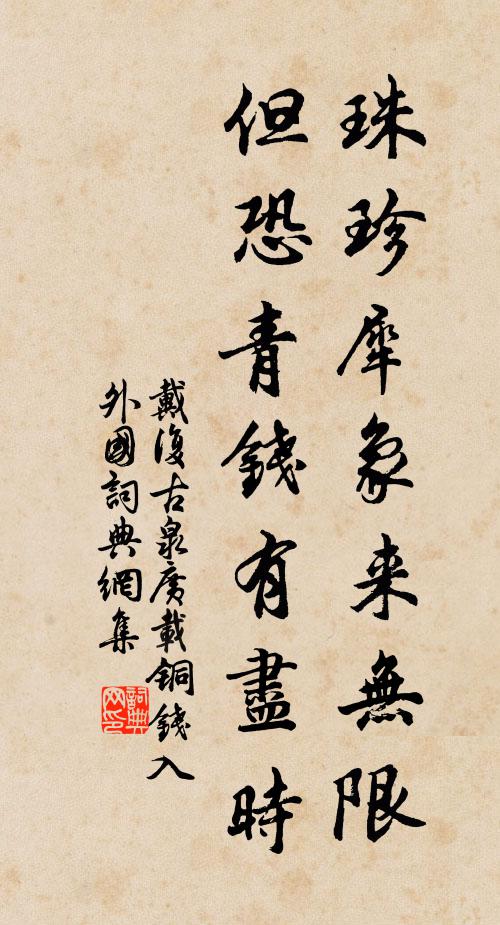 珠珍犀象来無限
但恐青錢有盡時
戴復古泉廣載銅錢入
外國詞典網集
詞典网印